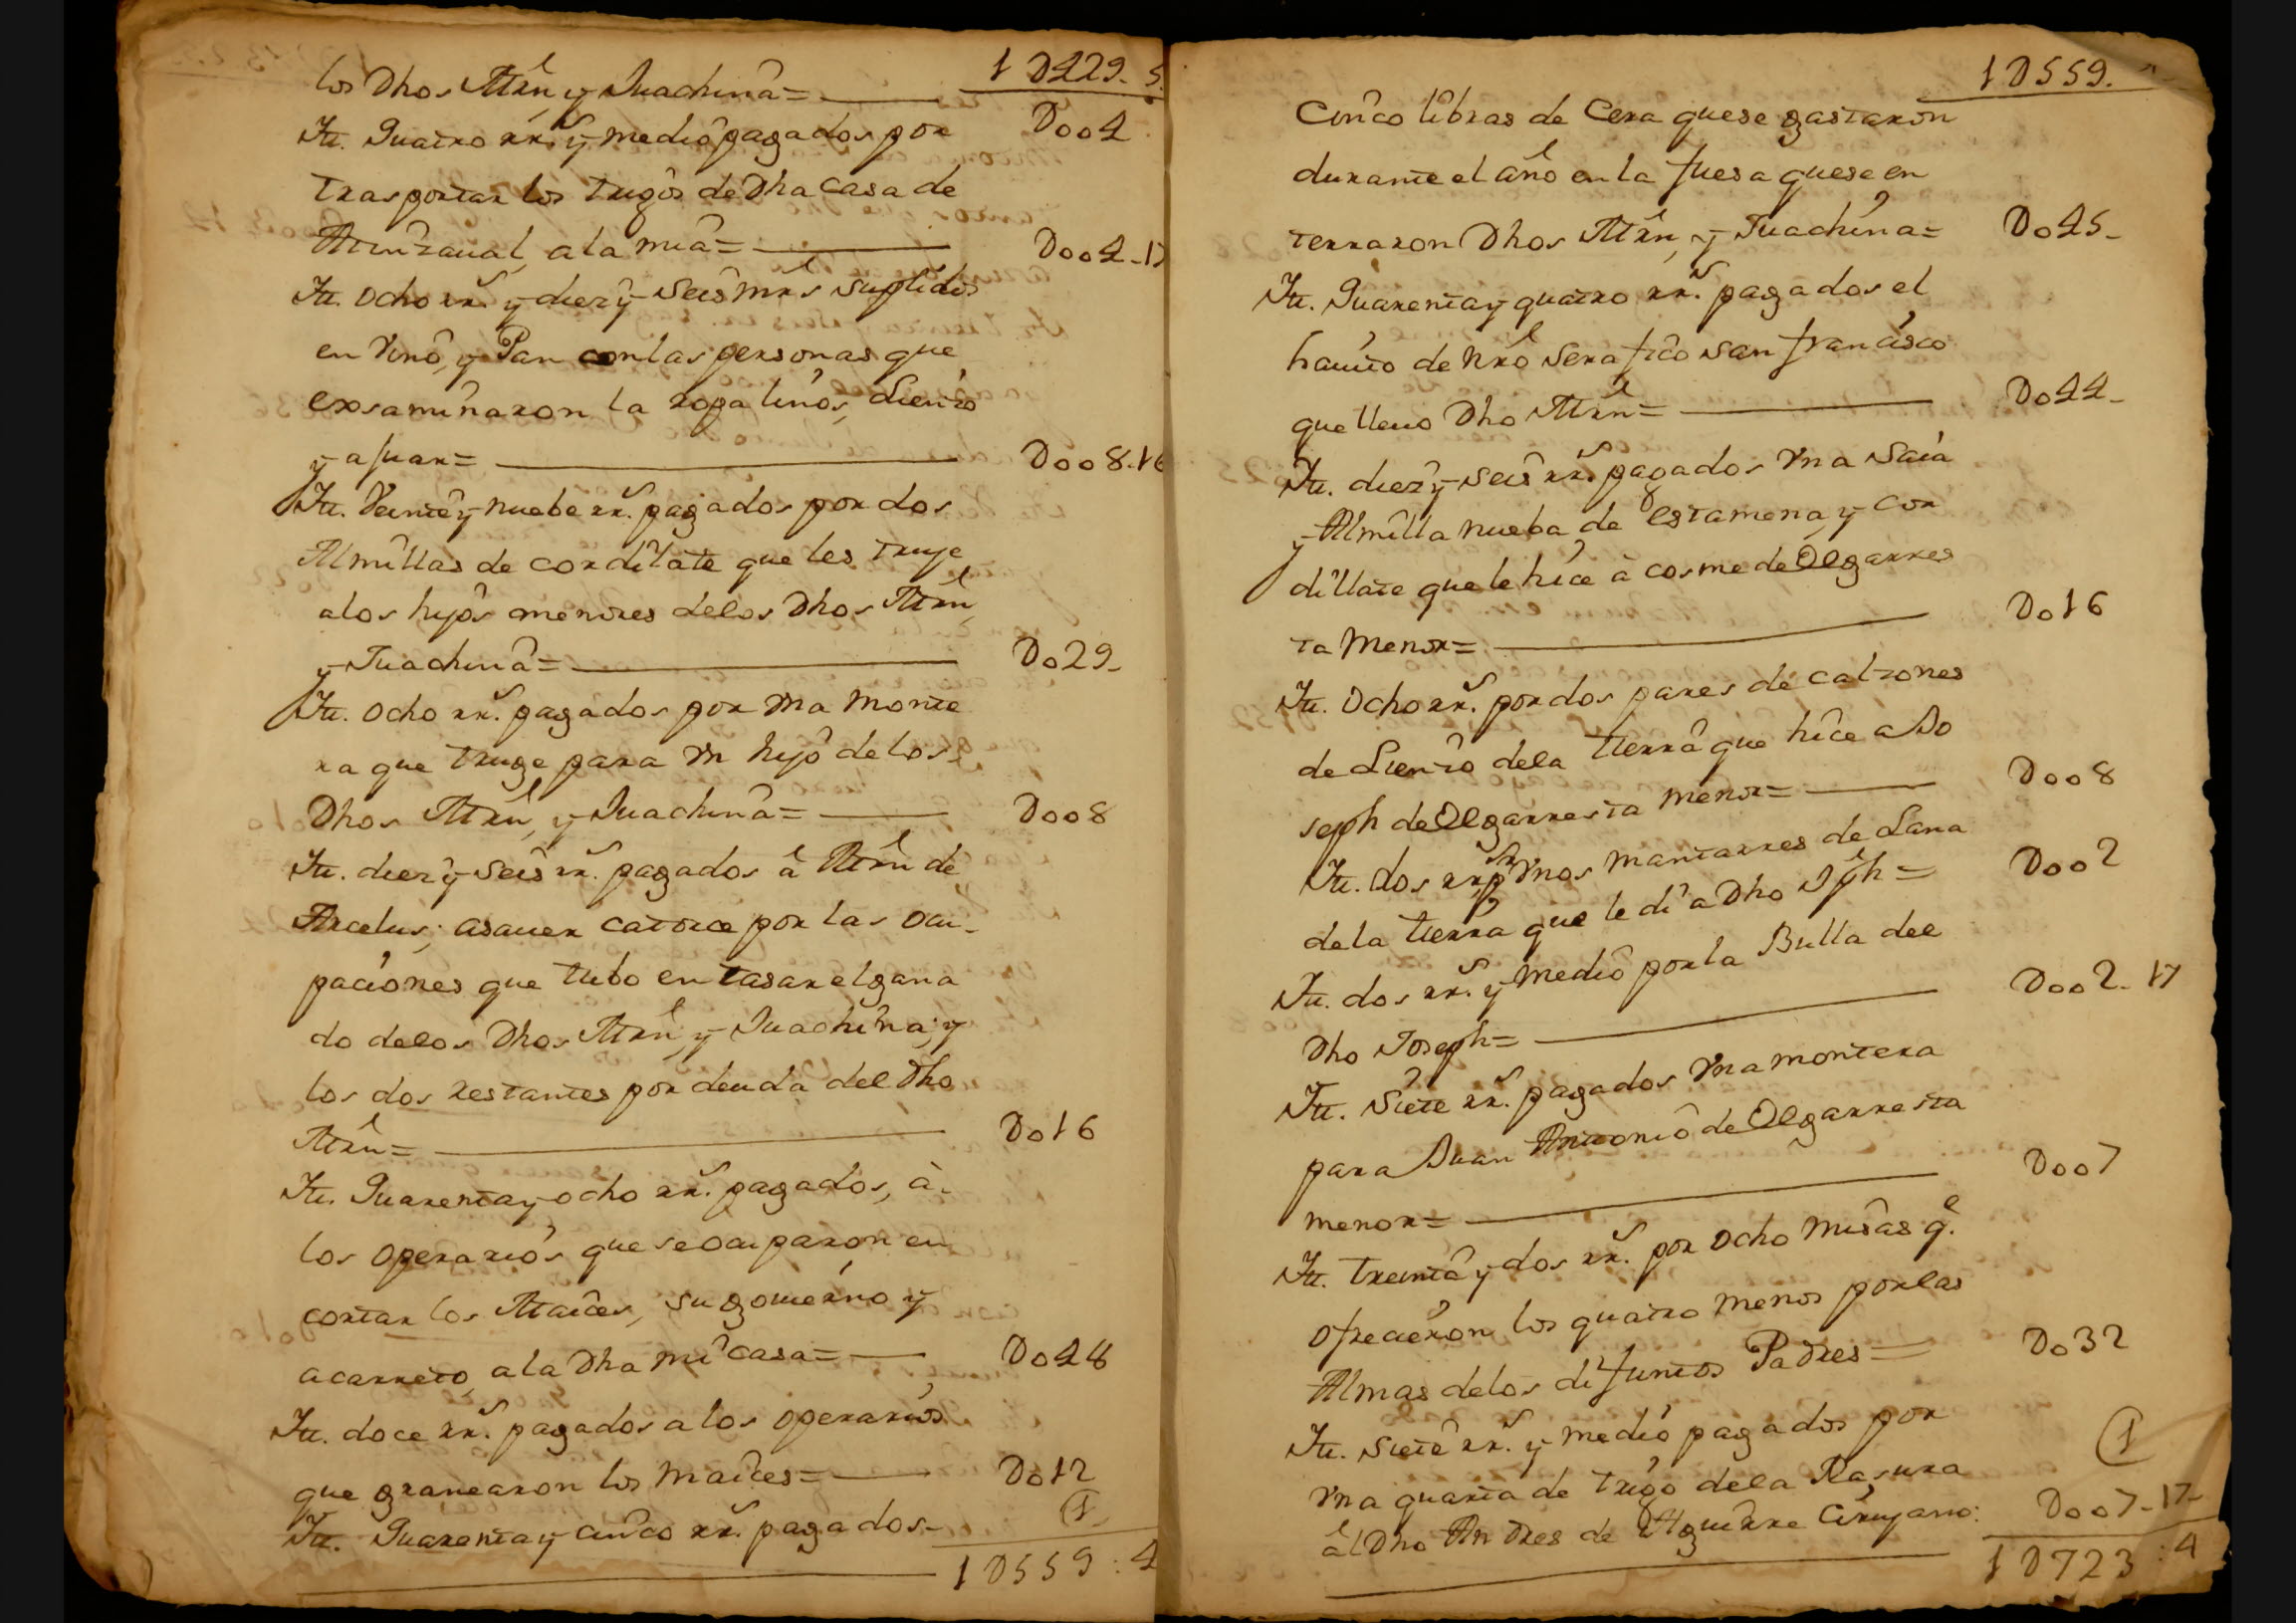 1 D429. 5.
los Dhos Mrn, y Juachina= D004
Itt. Quatro rrs. y medio pagados por
trasportar los trigos de Dha casa de
Amizaual, a la mia= D004-17
Itt. ocho rrs. y diez y seis mrs suplidos
en Vino, y Pan con las personas que
exsaminaron la ropa linos, Lienzo
y ajuar= D008-16
Itt. Veinte y nuebe rrs. pagados por dos
Almillas de cordilate que les truje
a los hijos menores de los Dhos Mrn,
y Juachina= D029-
Itt. ocho rrs. pagados por Vna monte
ra que truge para Vn hijo de los
Dhos Mrn, y Juachina= D008
Itt. diez y seis rrs. pagados â Mrn de
Arcelus; asauer catorce por las ocu-
paciones que tubo en tasar el gana
do de los Dhos Mrn, y Juachina; y
los dos restantes por deuda del Dho
Mrn= D016
Itt. Quarenta y ocho rrs. pagados, à
los operarios que se ocuparon en
cortar los Maices, su gouierno y
acarreto, a la Dha mi casa= D048
Itt. doce rrs. pagados a los operarios
que granearon los maices= D012
Itt. Quarenta y cinco rrs. pagados- (1)
1 D559 : 4
1 D559.
Cinco libras de Cera que se gastaron
durante el año en la fuesa que se en
terraron Dhos Mrn, y Juachina= D045-
Itt. Quarenta y quatro rrs. pagados el
hauito de nro Serafico san francisco
que lleuo Dho Mrn= D044-
Itt. diez y seis rrs. pagados Vna saia
y Almilla nueba de estamena, y cor
dillate que le hice à cosme de Olgarres
ta menor= D016
Itt. Ocho rrs. por dos pares de calzones
de Lienzo de la tierra que hice a Jo
seph de Olgarresta menor= D008
Itt. dos rrs. pr Vnos mantarres de Lana
de la tierra que le di a Dho Jph= D002
Itt. dos rrs. y medio por la Bulla del
Dho Joseph= D002-17
Itt. Siete rrs. pagados Vna montera
para Juan Antonio de Olgarresta
menor= D007
Itt. treinta y dos rrs. por ocho misas q̂.
ofrecieron los quatro menos por las
Almas de los difuntos Padres= D032
Itt. Siete rrs. y medio pagados por
Vna quarta de trigo de la Rasura (1)
âl Dho Andres de Aguirre Cirujano: D007-17-
1 D723 : 4